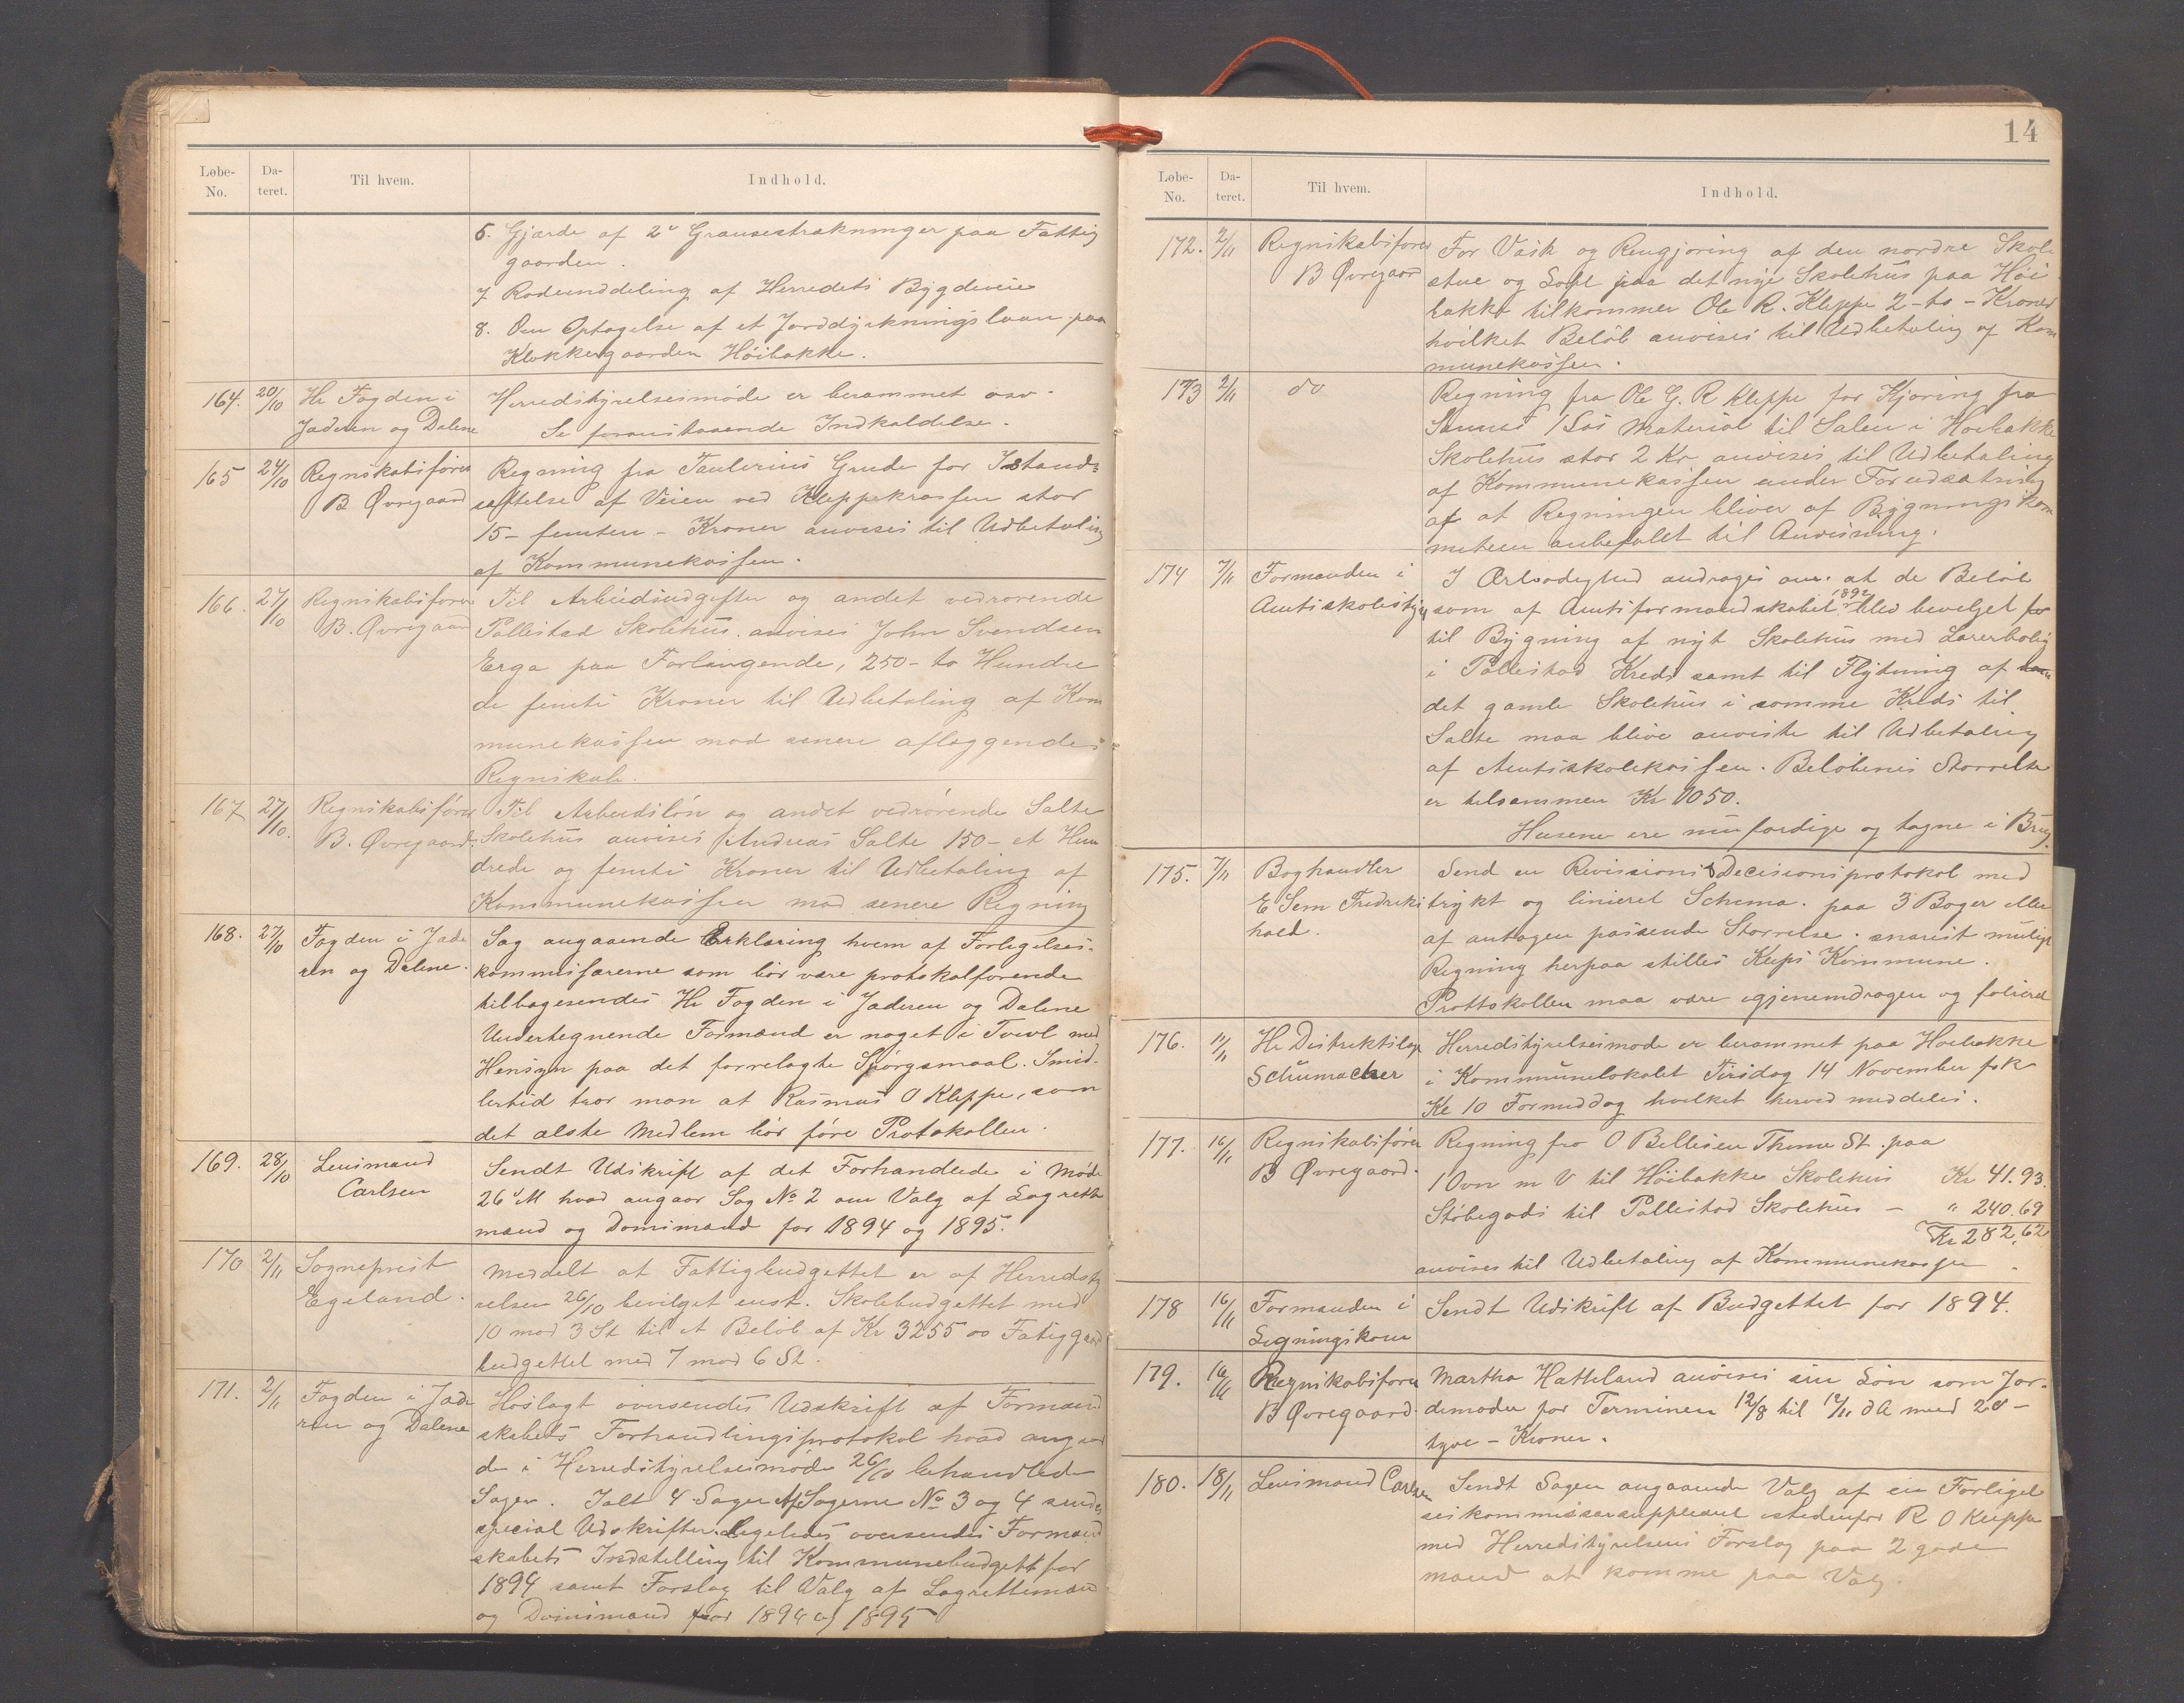 Løbe-
No.
Da-
teret.
Til hvem.
Indhold.
6. Gjærde af 2de Grændsestrækninger paa Fattig
gaarden.
7 Rodeinddeling af Herredets Bygdeveie
8. Om Optagelse af et Jorddyrkningslaan paa
Klokkergaarden Höibakke.
164. 20/10 Hr Fogden i Herredstyrelsesmöde er berammet osv.
Jæderen og Dalene Se foranstaaende Indkaldelse.
165 24/10 Regnskabsfører Regning fra Taulerius Grude for Istand-
B Øvregaard sættelse af Veien ved Kleppekrossen stor
15- femten - Kroner anvises til Udbetaling
af Kommunekassen.
166. 27/10 Regnskabsfører Til Arbeidsudgifter og andet vedrørende
B. Øvregaard Pollestad Skolehus. anvises John Svendsen
Erga paa Forlangende, 250- to Hundre
de femti Kroner til Udbetaling af Kom
munekassen mod senere aflæggendes
Regnskab.
167 27/10. Regnskabsfører Til Arbeidslön og andet vedrørende Salte
B. Øvregaard. Skolehus anvises Andreas Salte 150- et Hun
drede og femti Kroner til Udbetaling af
Kommunekassen mod senere Regning
168. 27/10 Fogden i Jæde Sag angaaende Erklæring hvem af Forligelses-
ren og Dalene. kommisærerne som bör være protokolförende
tilbagesendes Hr Fogden i Jæderen og Dalene
Undertegnende Formænd er noget i Tvivl med
Hensyn paa det forrelagte Spörgsmaal. Imid-
lertid tror man at Rasmus O Kleppe, som
det ælste Medlem bör före Protokollen.
169. 28/10 Lensmand Sendt Udskrift af det Forhandlede i Möde
Carlsen 26 d M hvad angaar Sag No 2 om Valg af Lagrette
mænd og Domsmænd for 1894 og 1895.
170 2/11 Sogneprest Meddelt at Fattigbudgettet er af Herredsty
Egeland. relsen 26/10 bevilget enst. Skolebudgettet med
10 mod 3 St til et Belöb af Kr 3255 00 Fatiggaard
budgettet med 7 mod 6 St.
171. 2/11 Fogden i Jæde Hoslagt oversendes Udskrift af Formænd
ren og Dalene skabets Forhandlingsprotokol hvad angaaen
de i Herredstyrelsesmöde 26/10 behandlede
Sager. Ialt 4 Sager Af Sagerne No 3 og 4 sendes
special Udskrifter. Ligeledes oversendes Formænd
skabets Indstilling til Kommunebudgett for
1894 samt Forslag til Valg af Lagrettemænd
og Domsmænd for 1894 og 1895
14
Løbe-
No.
Da-
teret.
Til hvem.
Indhold.
172. 2/11 Regnskabsfører For Vask og Rengjøring af den nordre Skole
B Øvregaard stue og Loft paa det nye Skolehus paa Höi
bakke tilkommer Ole R. Kleppe 2- to - Kroner
hvilket Belöb anvises til Udbetaling af Kom
munekassen.
173 2/11 do Regning fra Ole G. R Kleppe for Kjøring fra
Sannes 1 Læs Material til Salen i Höibakke
Skolehus stor 2 Kr anvises til Udbetaling
af Kommunekassen under Forudsætning
af at Regningen bliver af Bygningskom
miteen anbefalet til Anvisning.
174 7/11 Formanden i I Ærbødighed andrages om. at de Belöb
Amtsskolestyret som af Amtsformandskabet 1892 blev bevilget for
til Bygning af nyt Skolehus med Lærerbolig
i Pollestad Kreds samt til Flytning af
det gamle Skolehus i samme Kreds til
Salte maa blive anviste til Udbetaling
af Amtsskolekassen. Belöbenes Størrelse
er tilsammen Kr 1050.
Husene ere nu færdige og tagne i Brug.
175. 7/11 Boghandler Send en Revisions & Decisionsprotokol med
E Sem Fredriks trykt og linieret Schema. paa 3 Boger eller
hald. af antagen passende Størrelse. snarest muligt
Regning herpaa stilles Kleps Kommune.
Prottokollen maa være igjenemdragen og folieret
176. 11/11 Hr Distriktslæge Herredstyrelsesmöde er berammet paa Höibakke
Schumacher i Kommunelokalet Tirsdag 14 November fsk
Kl 10 Formiddag hvilket herved meddeles.
177. 16/11 Regnskabsfører Regning fra O Bellesen Thime St. paa
B Øvregaard. 1 Ovn m V til Höibakke Skolehus Kr 41.93.
Stöbegods til Pollestad Skolehus - " 240.69
Kr 282.62
anvises til Udbetaling af Kommunekassen.
178 16/11 Formanden i Sendt Udskrift af Budgettet for 1894.
Ligningskom
179. 16/11 Regnskabsfører Martha Hatteland anvises sin Lön som Jor-
B Øvregaard. demoder for Terminen 12/8 til 12/11 dA med 20-
tyve - Kroner.
180. 18/11 Lensmand Carlsen Sendt Sagen angaaende Valg af en Forligel
seskommissærsuppleant istedenfor R O Kleppe
med Herredstyrelsens Forslag paa 2 gode
mænd at komme paa Valg.